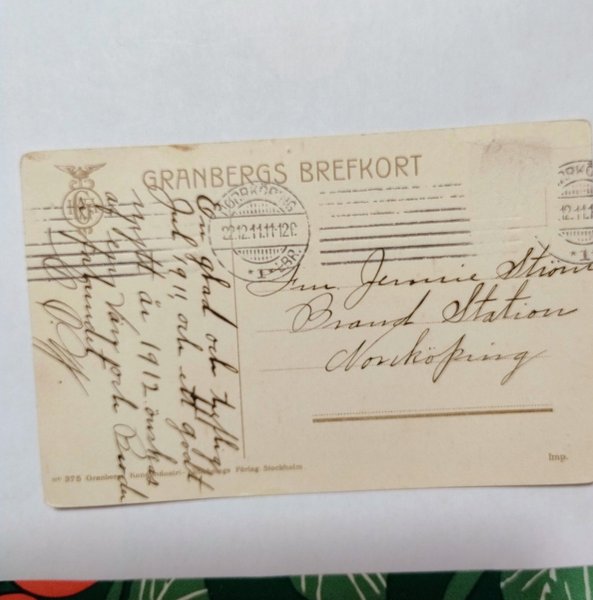 GRANBERGS BREFKORT
NORRKÖPING
22.12.11.11-12F
*1* LBR.
12.11.1
En glad och lycklig
Jul 1911 och ett godt
nytt år 1912 önskas
af ern Vän och Broder
i förbundet
Fru Jennie Ström
Brand Station
Norrköping
№ 375 Granbergs Förlag Stockholm
Imp.